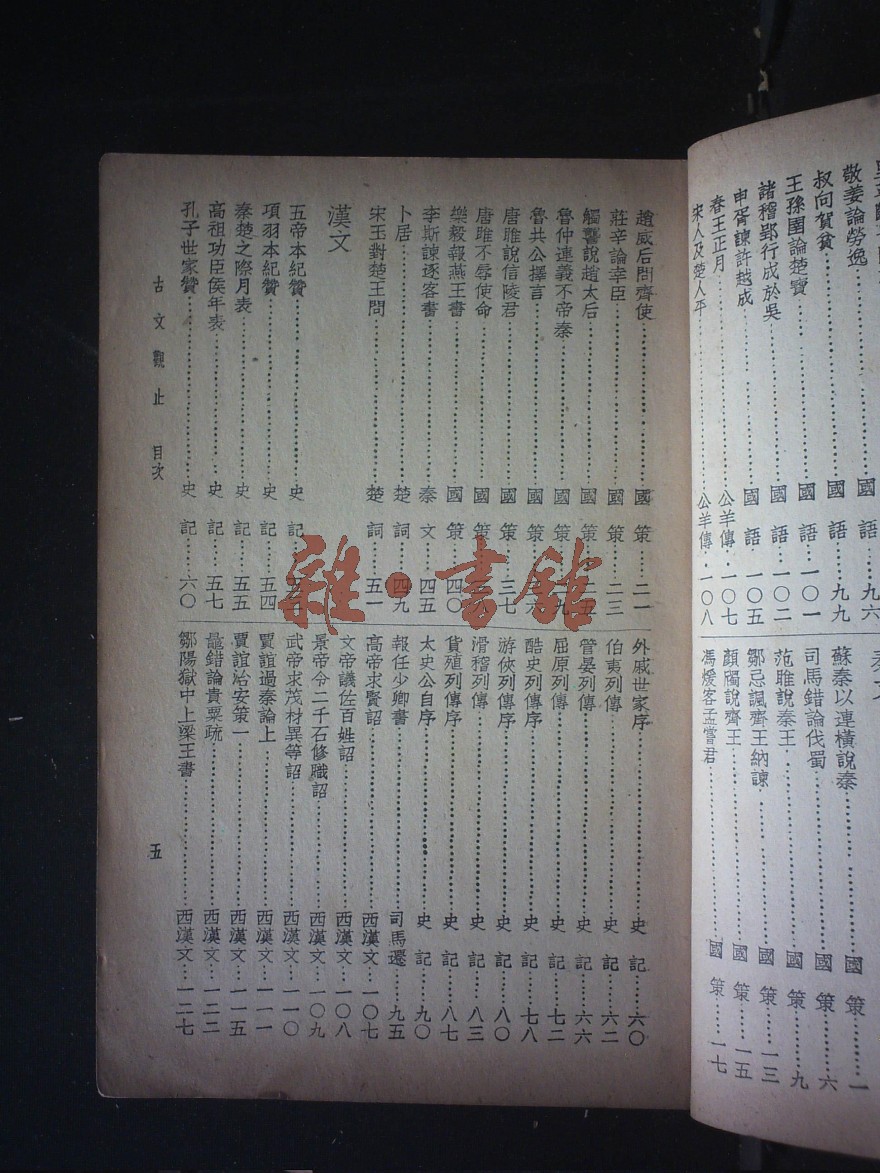 敬姜論勞逸……國語……九六
叔向賀貧……國語……九九
王孫圉論楚寶……國語……一〇一
諸稽郢行成於吳……國語……一〇二
申胥諫許越成……國語……一〇五
春王正月……公羊傳……一〇七
宋人及楚人平……公羊傳……一〇八
蘇秦以連橫說秦……國策……一
司馬錯論伐蜀……國策……六
范雎說秦王……國策……九
鄒忌諷齊王納諫……國策……一三
顏斶說齊王……國策……一五
馮煖客孟嘗君……國策……一七
趙威后問齊使……國策……二一
莊辛論幸臣……國策……二三
觸讋說趙太后……國策……二五
魯仲連義不帝秦……國策
魯共公擇言……國策
唐雎說信陵君……國策……三七
唐雎不辱使命……國策
樂毅報燕王書……國策……四〇
李斯諫逐客書……秦文……四五
卜居……楚詞……四九
宋玉對楚王問……楚詞……五一
漢文
五帝本紀贊……史記
項羽本紀贊……史記……五四
秦楚之際月表……史記……五五
高祖功臣侯年表……史記……五七
孔子世家贊……史記……六〇
外戚世家序……史記……六〇
伯夷列傳……史記……六二
管晏列傳……史記……六六
屈原列傳……史記……七二
酷吏列傳序……史記……七八
游俠列傳序……史記……八〇
滑稽列傳……史記……八三
貨殖列傳序……史記……八七
太史公自序……史記……九〇
報任少卿書……司馬遷……九五
高帝求賢詔……西漢文……一〇七
文帝議佐百姓詔……西漢文……一〇八
景帝令二千石修職詔……西漢文……一〇九
武帝求茂材異等詔……西漢文……一一〇
賈誼過秦論上……西漢文……一一一
賈誼治安策一……西漢文……一一五
鼂錯論貴粟疏……西漢文……一二二
鄒陽獄中上梁王書……西漢文……一二七
古文觀止 目次 五
雜·書館